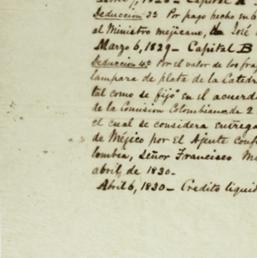 1828 - Capital A
Deduccion 3ª Por pago hecho en 6
al Ministro mejicano, Dn José
Marzo 6, 1829 - Capital B
Deduccion 4ª Por el valor de los fra
lampara de plata de la Catedr
tal como se fijó en el acuerdo
de la Comision Colombiana, de 2
el cual se considera entrega
de Méjico por el Ajente conf
lombia, Señor Francisco M
abril, de 1830.
Abril 6, 1830 - Credito liquid